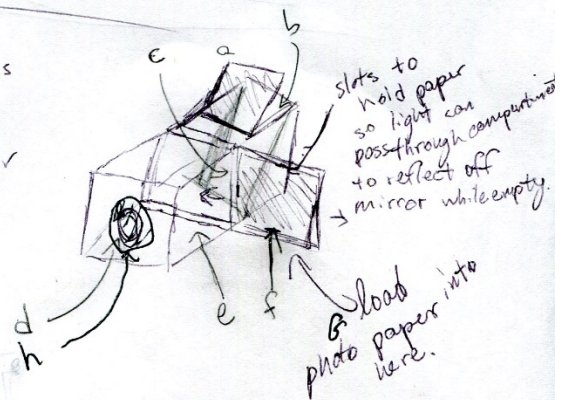 s
r
a
b
c
slots to
hold paper
so light can
pass through compartment
to reflect off
mirror while empty.
d
h
e
f
load
photo paper into
here.